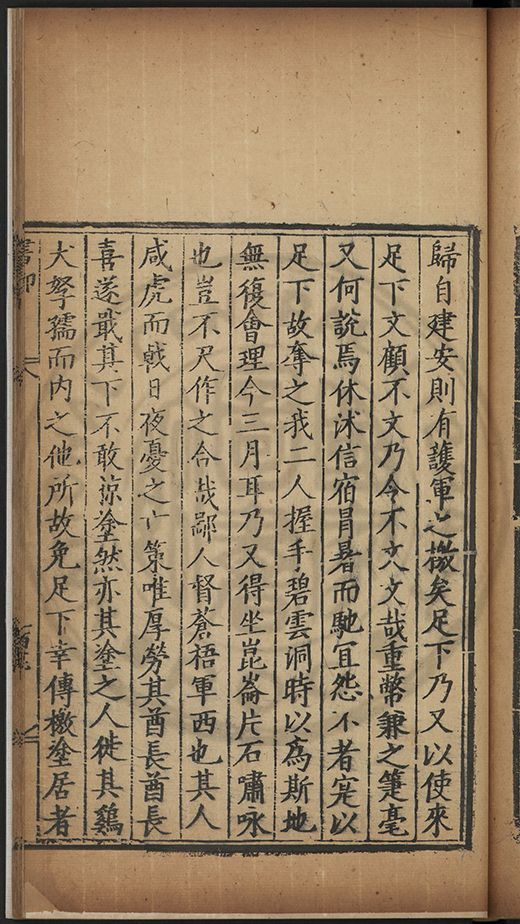 歸自建安則有護軍之檄矣足下乃又以使來
足下文顧不文乃令不文文哉重幣兼之筆毫
又何說焉休沐信宿冒暑而馳宜怨不者寔以
足下故奪之我二人握手碧雲洞時以為斯地
無復會理今三月耳乃又得坐崑崙片石嘯咏
也豈不尺作之合哉鄙人督蒼梧軍西也其人
咸虎而戟日夜憂之亡策唯厚勞其酋長酋長
喜遂戢其下不敢諒塗然亦其塗之人徙其鷄
犬孥孺而內之他所故免足下幸傳檄塗居者